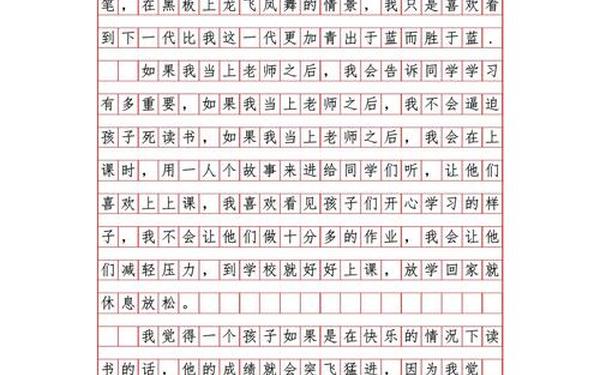 笔，在黑板上龙飞凤舞的情景，我只是喜欢看
到下一代比我这一代更加青出于蓝而胜于蓝．
如果我当上老师之后，我会告诉同学学习
有多重要，如果我当上老师之后，我不会逼迫
孩子死读书，如果我当上老师之后，我会在上
课时，用一人个故事来进给同学们听，让他们
喜欢上上课，我喜欢看见孩子们开心学习的样
子，我不会让他们做十分多的作业，我会让他
们减轻压力，到学校就好好上课，放学回家就
休息放松。
我觉得一个孩子如果是在快乐的情况下读
书的话，他的成绩就会突飞猛进，因为我觉